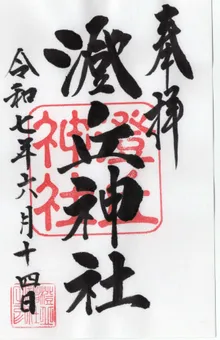 奉拝
澄丘神社
澄丘
神社
令和七年六月十四日